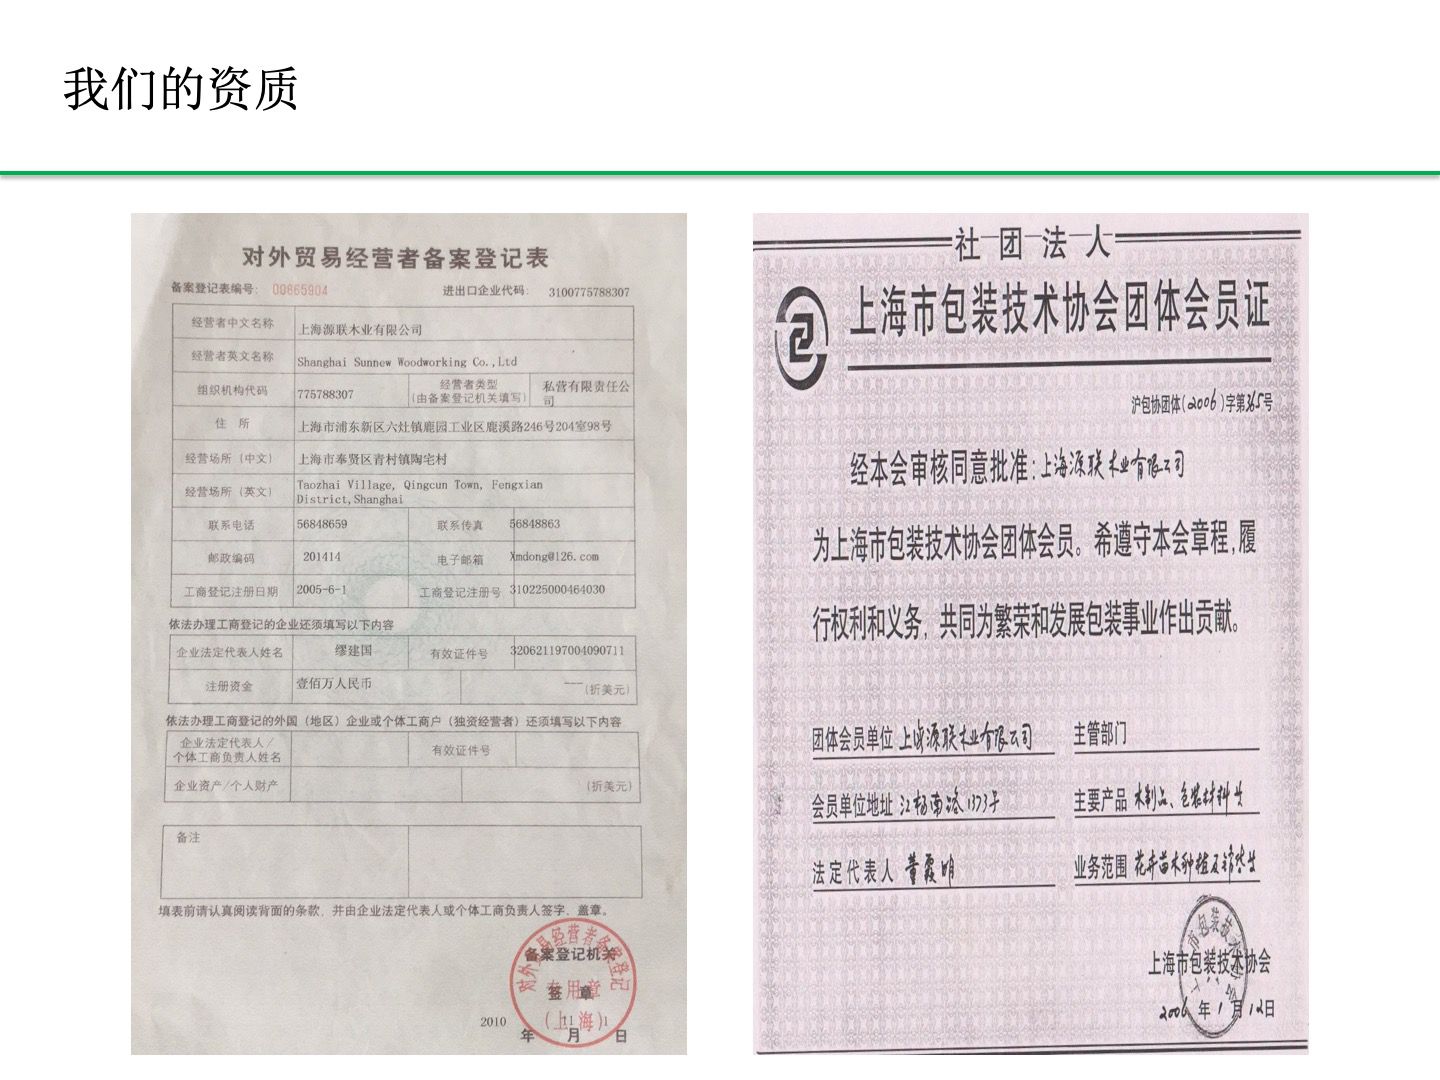 我们的资质
对外贸易经营者备案登记表
备案登记表编号: 00865904 进出口企业代码: 3100775788307
经营者中文名称 上海源联木业有限公司
经营者英文名称 Shanghai Sunnew Woodworking Co.,Ltd
组织机构代码 775788307 经营者类型 (由备案登记机关填写) 私营有限责任公司
住 所 上海市浦东新区六灶镇鹿园工业区鹿溪路246号204室98号
经营场所（中文） 上海市奉贤区青村镇陶宅村
经营场所（英文） Taozhai Village, Qingcun Town, Fengxian
District,Shanghai
联系电话 56848659 联系传真 56848863
邮政编码 201414 电子邮箱 Xmdong@126.com
工商登记注册日期 2005-6-1 工商登记注册号 310225000464030
依法办理工商登记的企业还须填写以下内容
企业法定代表人姓名 缪建国 有效证件号 320621197004090711
注册资金 壹佰万人民币 (折美元)
依法办理工商登记的外国（地区）企业或个体工商户（独资经营者）还须填写以下内容
企业法定代表人/
个体工商负责人姓名 有效证件号
企业资产/个人财产 (折美元)
备注
填表前请认真阅读背面的条款，并由企业法定代表人或个体工商负责人签字、盖章。
备案登记机关
签 章
对外贸易经营者备案登记
专用章
(上海)
2010 年 11 月 1 日
社团法人
上海市包装技术协会团体会员证
沪包协团体(2006)字第365号
经本会审核同意批准:上海源联木业有限公司
为上海市包装技术协会团体会员。希遵守本会章程,履
行权利和义务，共同为繁荣和发展包装事业作出贡献。
团体会员单位 上海源联木业有限公司 主管部门
会员单位地址 江杨南路1373号 主要产品 木制品、包装材料
法定代表人 董霞明 业务范围 花卉苗木种植及
上海市包装技术协会
2006年1月12日